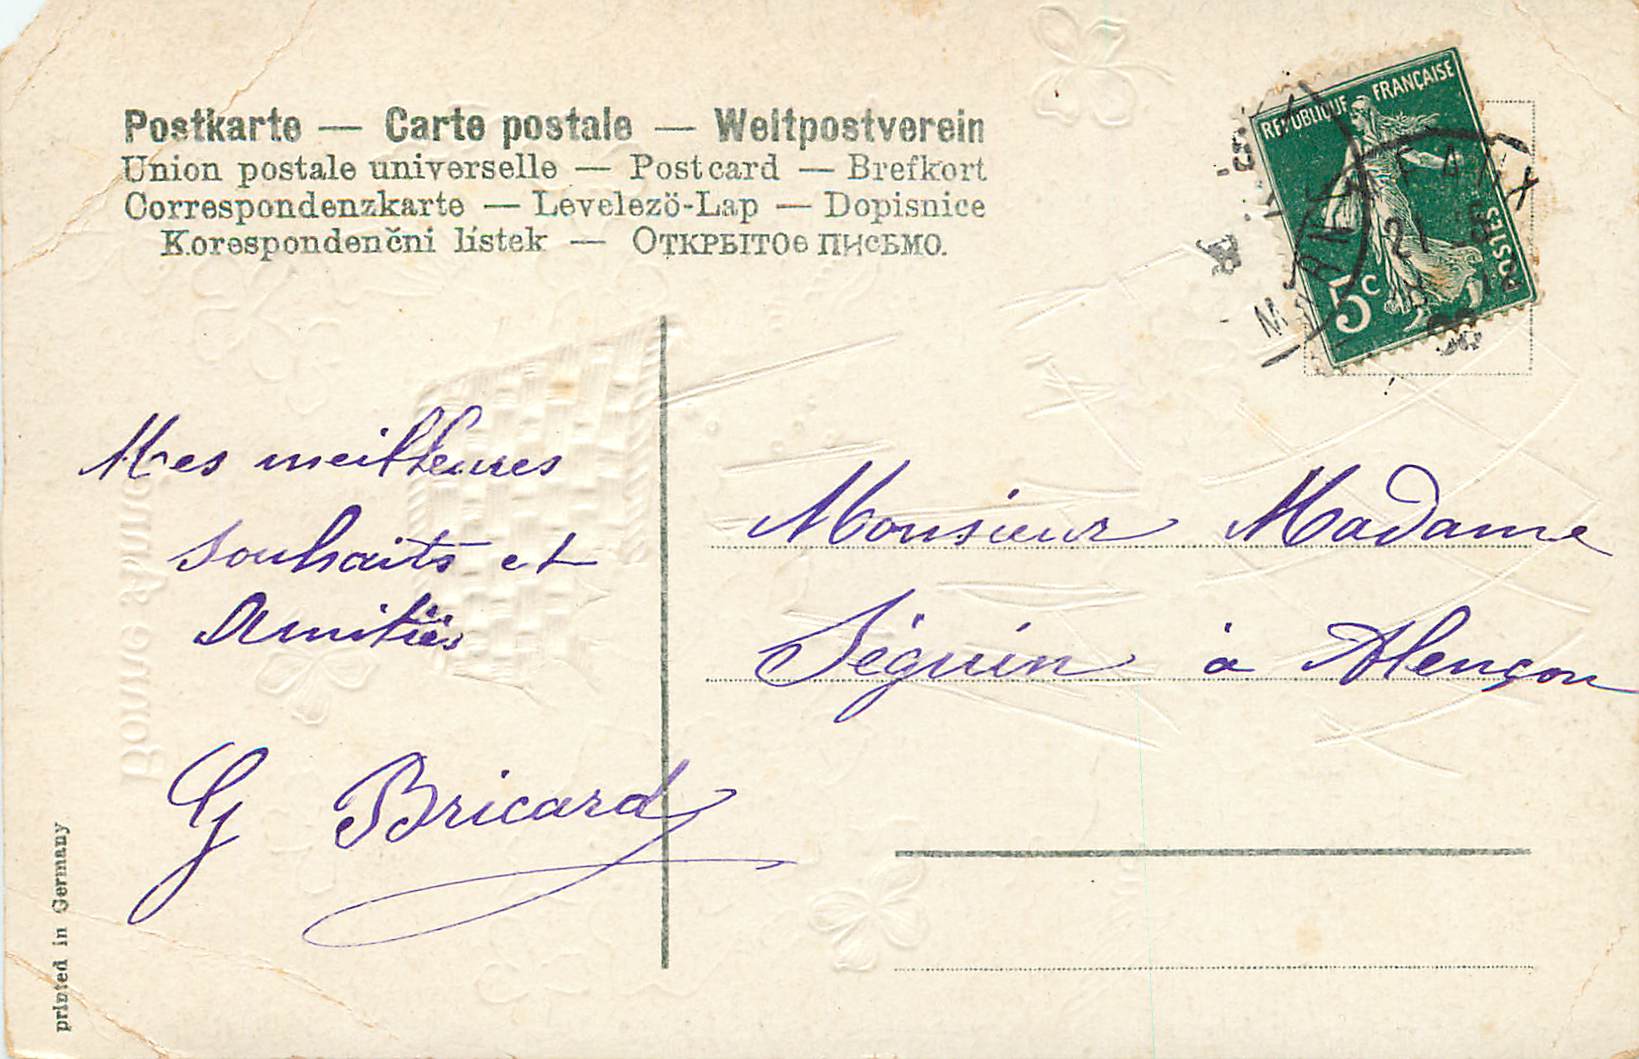 Postkarte — Carte postale — Weltpostverein
Union postale universelle — Postcard — Brefkort
Correspondenzkarte — Levelező-Lap — Dopisnice
Korespondenční lístek — Открытое письмо.
REPUBLIQUE FRANÇAISE
POSTES
5c
Mes meilleures
souhaits et
Amitiés
G Bricard
Monsieur Madame
Séguin à Alençon
Bonne Année
printed in Germany